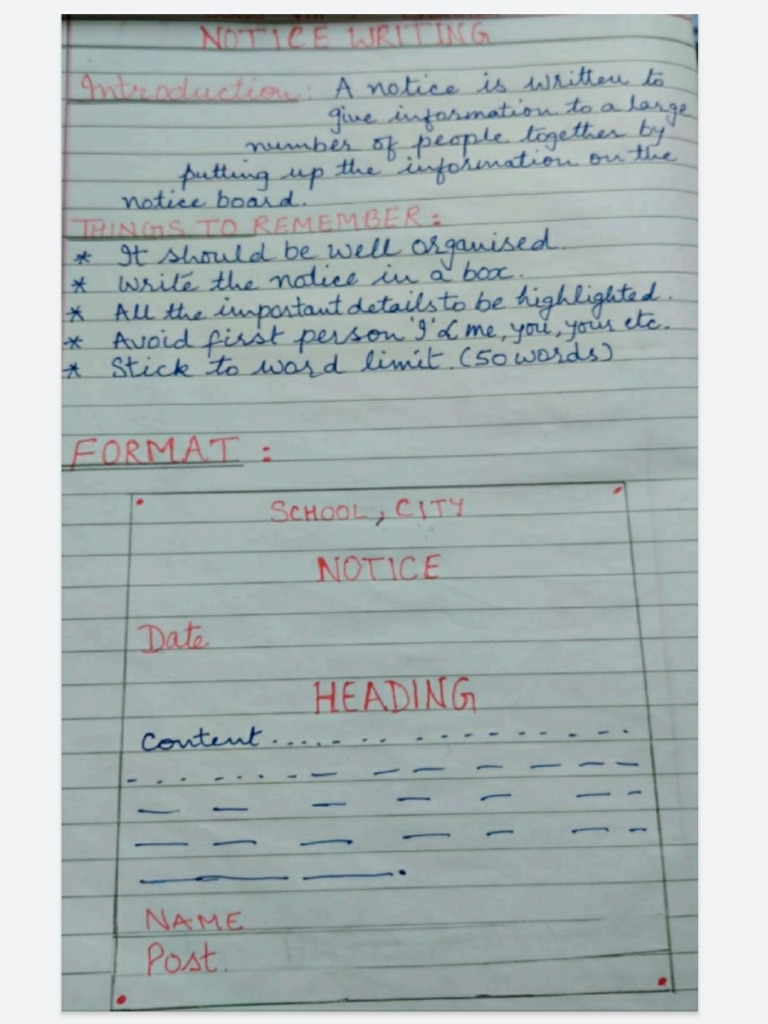 NOTICE WRITING
Introduction: A notice is written to
give information to a large
number of people together by
putting up the information on the
notice board.
THINGS TO REMEMBER:
* It should be well organised.
* Write the notice in a box.
* All the important details to be highlighted.
* Avoid first person 'I' & me, you, your etc.
* Stick to word limit. (50 words)
FORMAT :
SCHOOL, CITY
NOTICE
Date
HEADING
Content
NAME
Post.